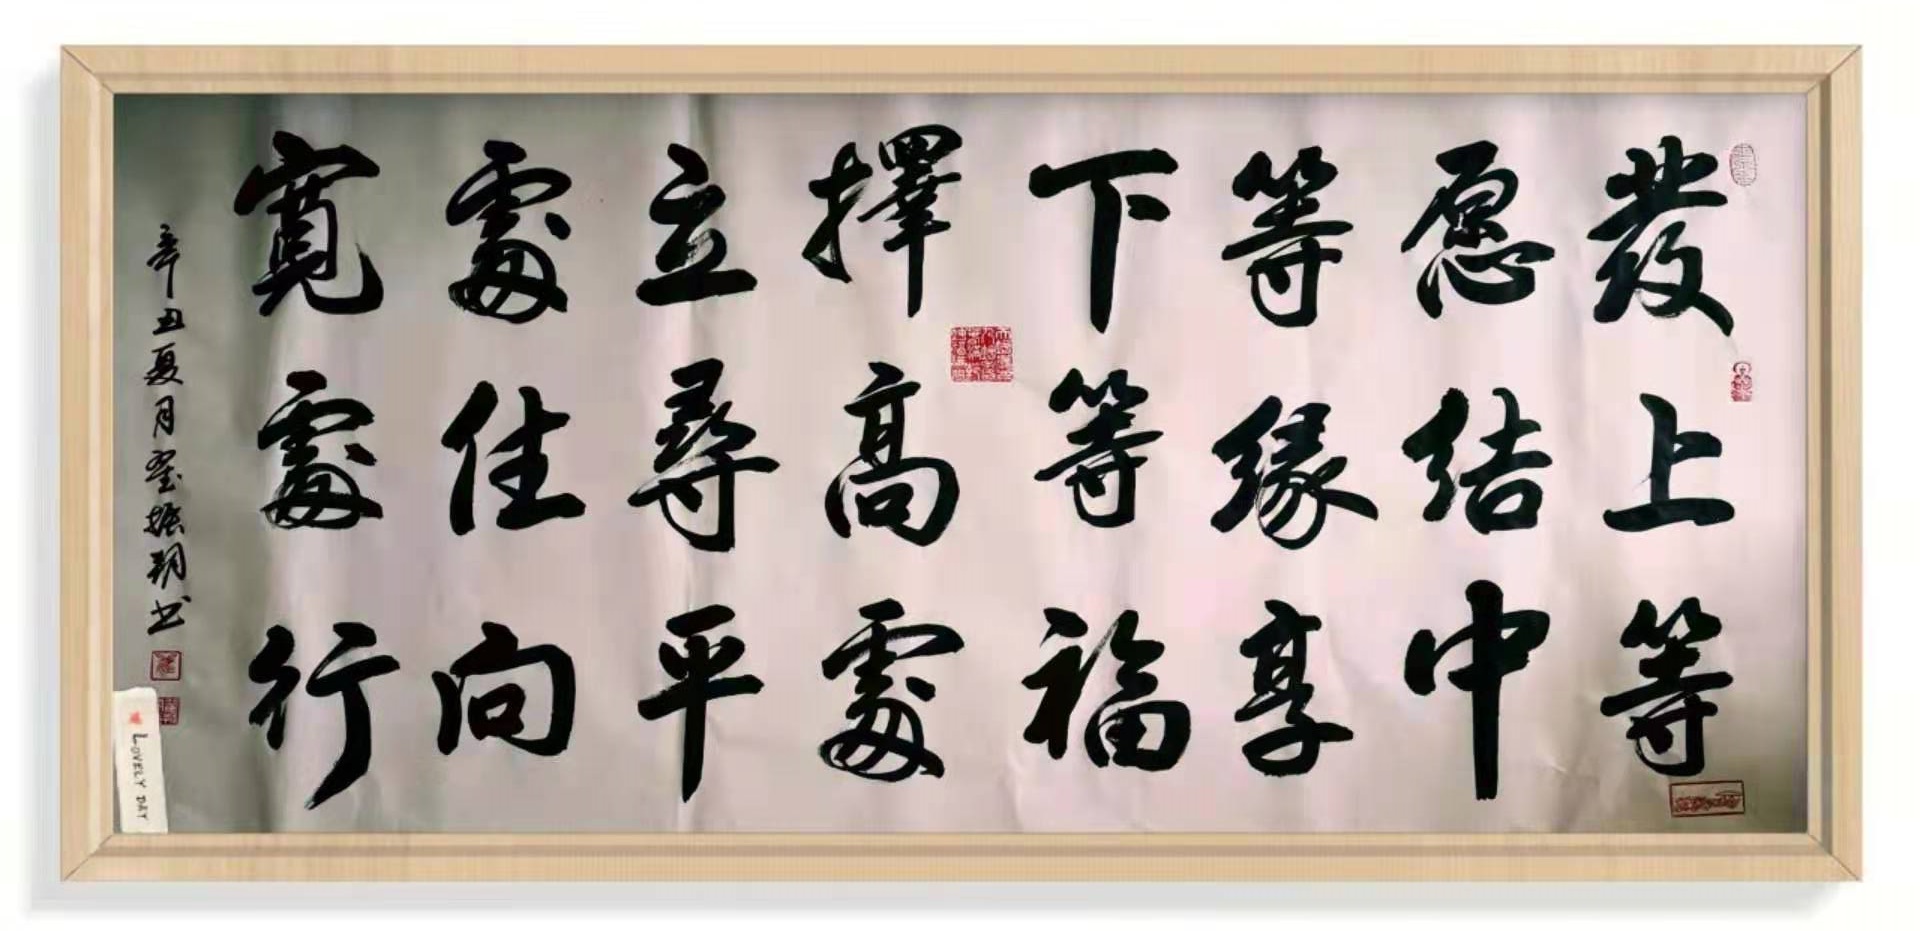 發上等
愿结中
等缘享
下等福
擇高處
立尋平
處住向
寬處行
辛丑夏月翟振翔书
LOVELY DAY